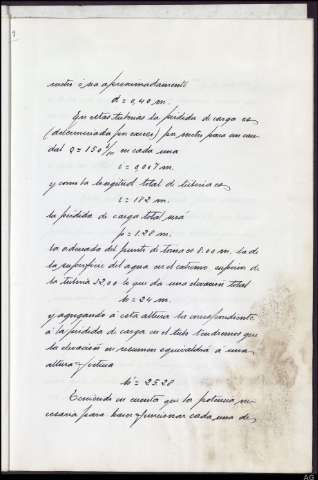 metro ó sea aproximadamente
d = 0,40 m.
En estas tuberias la pérdida de carga es
(determinada por exceso) por metro para un cau-
dal Q = 150 l/s en cada una
i = 0,007 m.
y como la longitud total de tuberia es
l = 182 m.
la perdida de carga total será
p = 1.28 m.
La altura del punto de toma es 8.00 m. la de
la superficie del agua en el extremo superior de
la tuberia 32,00 lo que da una elevacion total
h = 24 m.
y agregando á esta altura la correspondiente
á la perdida de carga en el tubo tendremos que
la elevación en resumen equivaldrá á una
altura ficticia
h' = 25.28
Teniendo en cuenta que la potencia ne-
cesaria para hacer funcionar cada una de
AG